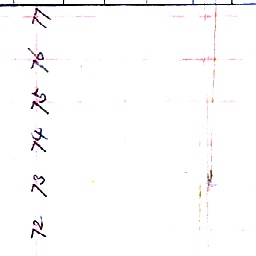 77
76
75
74
73
72